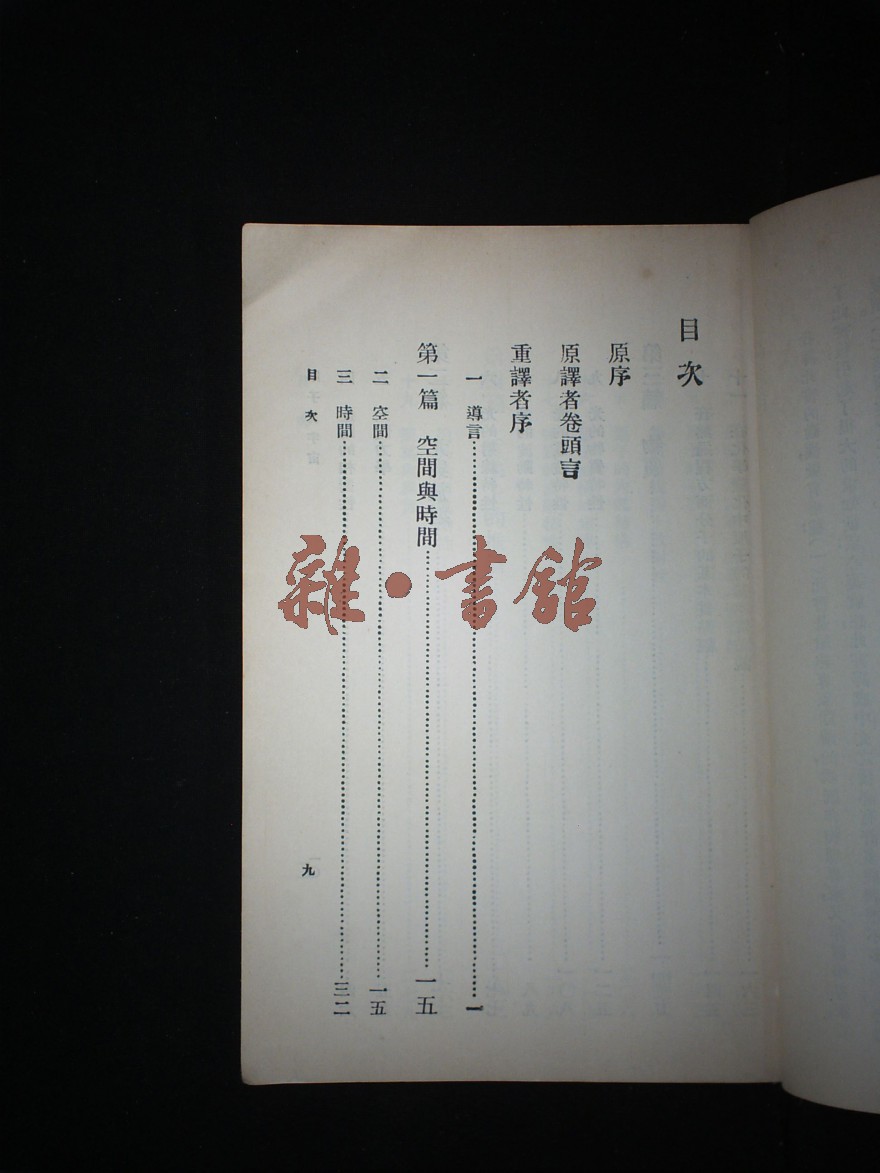 目次
原序
原譯者卷頭言
重譯者序
一 導言……一
第一篇 空間與時間……一五
二 空間……一五
三 時間……三二
目次
九
雜·書館